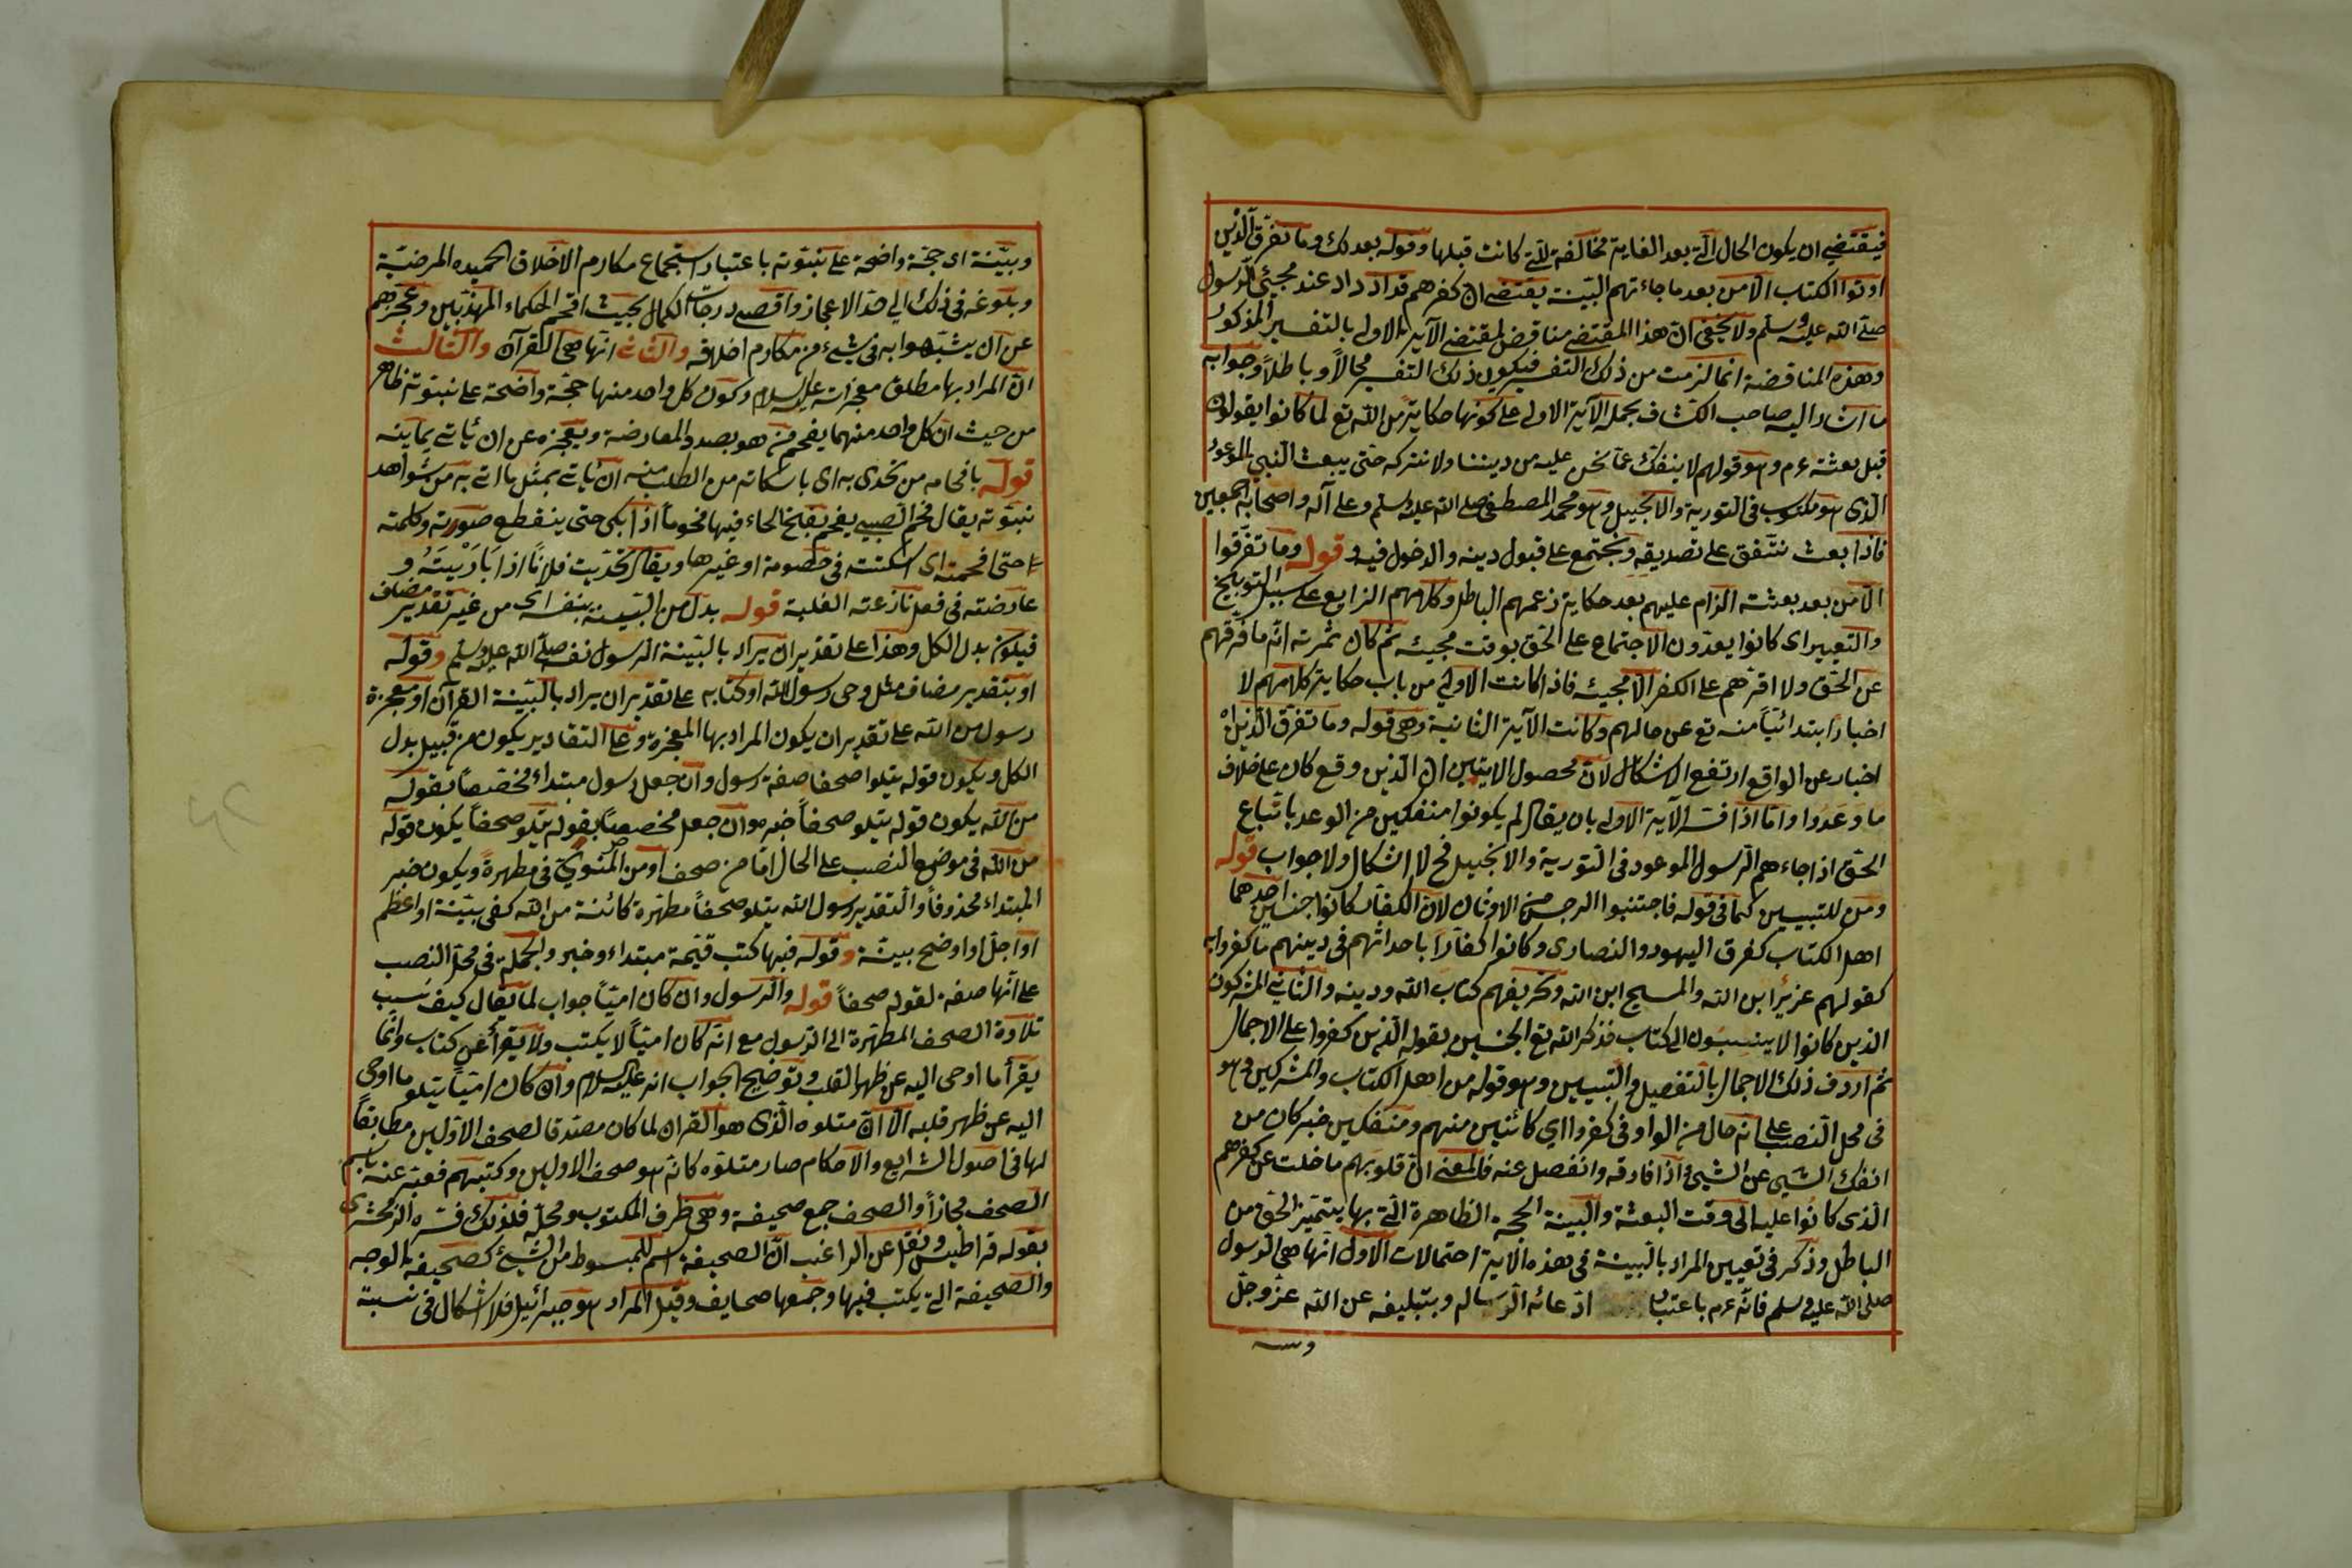 فيقتضي ان يكون الحال التي بعد الغاية مخالفة للتي كانت قبلها وقوله بعد ذلك وما تفرق الذين
اوتوا الكتاب الا من بعد ما جاءتهم البينة يقتضي ان كفرهم قد ازداد عند مجيئ الرسول
صلى الله عليه وسلم ولا يخفى ان هذا المقتضى مناقض لمقتضى الآية الاولى بالتفسير المذكور
وهذه المناقضة انما لزمت من ذلك التفسير فيكون ذلك التفسير محالاً وباطلاً وجوابه
ما اشار اليه صاحب الكشاف بحمل الآية الاولى على كونها حكاية من الله تع لما كانوا يقولون
قبل بعثته ءم وهو قولهم لا ننفك عما نحن عليه من ديننا ولا نتركه حتى يبعث النبي الموعود
الذى هو مكتوب فى التورية والانجيل وهو محمد المصطفى صلى الله عليه وسلم وعلى آله واصحابه اجمعين
فاذا بعث نتفق على تصديقه ونجتمع على قبول دينه والدخول فيه وقوله وما تفرقوا
الا من بعد بعثته الزام عليهم بعد حكاية زعمهم الباطل وكلامهم الزايع على سبيل التوبيخ
والتعيير اى كانوا يعدون الاجتماع على الحق بوقت مجيئه ثم كان ثمرته انه ما فرقهم
عن الحق ولا اقرهم على الكفر الا مجيئه فاذا كانت الاولى من باب حكاية كلامهم لا
اخبارا ابتدائيا منه تع عن حالهم وكانت الآية الثانية وهى قوله وما تفرق الذين اه
اخبار عن الواقع ارتفع الاشكال لان محصول الايتين ان الذين وقع كان على خلاف
ما وعدوا واما اذا فسر الآية الاولى بان يقال لم يكونوا منفكين من الوعد باتباع
الحق اذا جاءهم الرسول الموعود فى التورية والانجيل فح لا اشكال ولا جواب قوله
ومن للتبيين كما فى قوله فاجتنبوا الرجس من الاوثان لان الكفار كانوا جنسين احدهما
اهل الكتاب كفرق اليهود والنصارى وكانوا كفارا باحداثهم فى دينهم ما كفروا به
كقولهم عزير ابن الله والمسيح ابن الله وتحريفهم كتاب الله ودينه والثاني المشركون
الذين كانوا لا ينسبون الى كتاب فذكر الله تع الجنسين بقوله الذين كفروا على الاجمال
ثم اردف ذلك الاجمال بالتفصيل والتبيين وهو قوله من اهل الكتاب والمشركين وهو
فى محل النصب على انه حال من الواو فى كفروا اي كائنين منهم ومنفكين خبر كان من
انفك الشيى عن الشيى اذا فارقه وانفصل عنه فالمعنى ان قلوبهم ما خلت عن كفرهم
الذى كانوا عليه الى وقت البعثة والبينة الحجة الظاهرة التي بها يتميز الحق من
الباطل وذكر فى تعيين المراد بالبينة فى هذه الاية احتمالات الاول انها هى الرسول
صلى الله عليه وسلم فانه ءم باعتبار ادعائه الرسالة وبتبليغه عن الله عز وجل
وبينة اى حجة واضحة على نبوته باعتبار استجماع مكارم الاخلاق الحميده المرضية
وبلوغه فى ذلك الى حد الاعجاز واقصى درجات الكمال بحيث افحم الحكماء المهذبين وعجزهم
عن ان يشبهوا به فى شيء من مكارم اخلاقه والثاني انها هى القرآن والثالث
ان المراد بها مطلق معجزاته عليه السلام وكون كل واحد منها حجة واضحة على نبوته ظاهر
من حيث ان كل واحد منهما يفحم من هو بصدد المعارضة ويعجزه عن ان ياتي بما ينه
قوله بافحامه من تحدى به اى باسكاته من الطلب منه ان ياتي بمثل ما اتى به من شواهد
نبوته يقال فحم الصبي يفحم بفتح الحاء فيها فحوماً اذا بكى حتى ينقطع صوته وكلمته
حتى افحمته اى اسكتته فى خصومة او غيرها ويقال تحديت فلانا اذا باريته و
عارضته فى فعل نازعته الغلبة قوله بدل من البينة بنفراى من غير تقدير مضاف
فيكون بدل الكل وهذا على تقدير ان يراد بالبينة الرسول نفسه صلى الله عليه وسلم وقوله
او بتقدير مضاف مثل وحى رسول الله او كتابه على تقدير ان يراد بالبينة القرآن او معجزة
رسول من الله على تقدير ان يكون المراد بها المعجزة وعلى التقادير يكون من قبيل بدل
الكل ويكون قوله يتلوا صحفا صفة رسول وان جعل رسول مبتداء مخصصا بقوله
من الله يكون قوله يتلو صحفاً خبره وان جعل مخصصا بقوله يتلو صحفاً يكون قوله
من الله فى موضع النصب على الحال اما من صحف او من المنوي فى مطهرة ويكون خبر
المبتداء محذوفا والتقدير رسول الله يتلو صحفاً مطهرة كائنة من الله كفى بينة او اعظم
او اجل او اوضح بينة وقوله فيها كتب قيمة مبتداء وخبر والجملة فى محل النصب
على انها صفة لقوله صحفاً قوله والرسول وان كان امياً جواب لما يقال كيف نسب
تلاوة الصحف المطهرة الى الرسول مع انه كان امياً لا يكتب ولا يقرأ عن كتاب وانما
يقرأ ما اوحى اليه عن ظهر القلب وتوضيح الجواب انه عليه السلام وان كان امياً يتلو ما اوحى
اليه عن ظهر قلبه الا ان متلوه الذى هو القران لما كان مصدقا لصحف الاولين مطابقاً
لها فى اصول الشرايع والاحكام صار متلوه كانه هو صحف الاولين وكتبهم فعبر عنه باسم
الصحف مجازاً والصحف جمع صحيفة وهى ظرف المكتوب ومحله فلذلك فسره الزمخشرى
بقوله قراطيس ونقل عن الراغب ان الصحيفة اسم للمبسوط من الشيء كصحيفة الوجه
والصحيفة التي يكتب فيها وجمعها صحايف وقيل المراد هو جبرائيل فلا اشكال فى نسبة